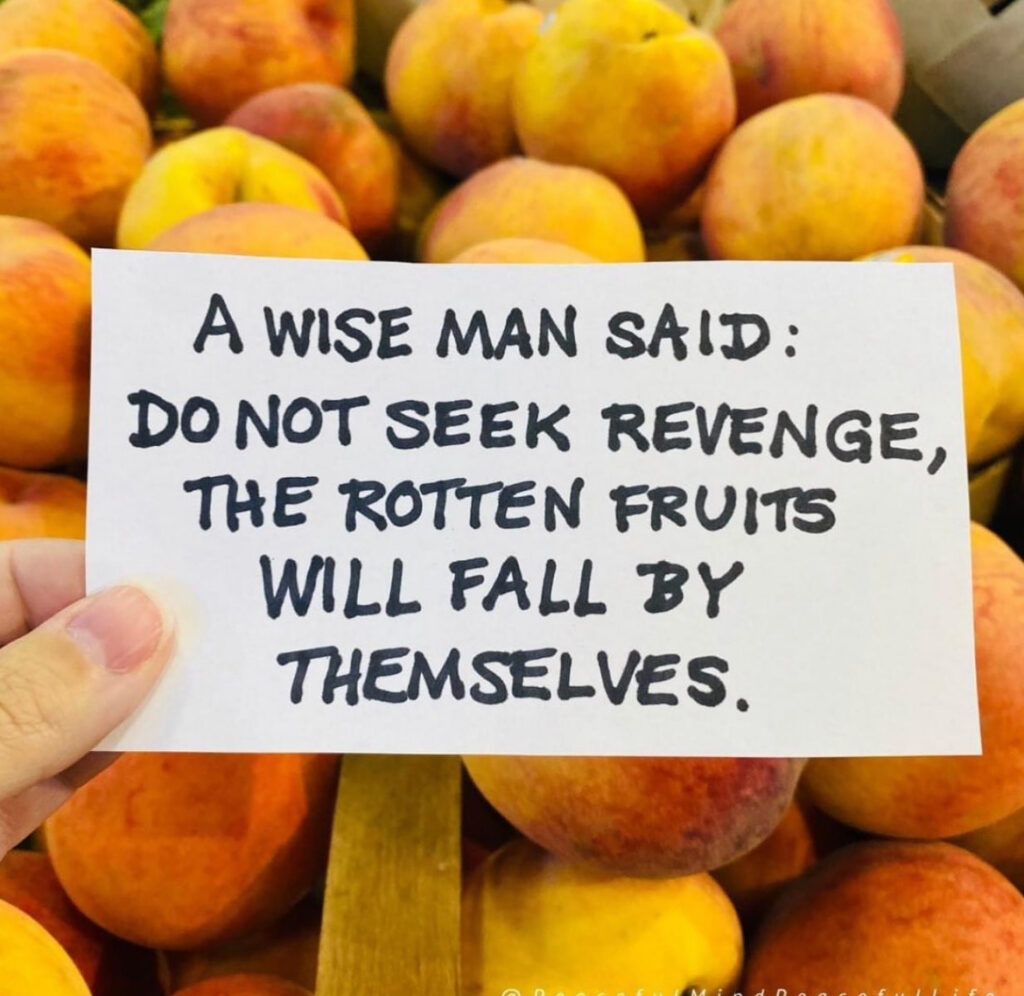 A WISE MAN SAID:
DO NOT SEEK REVENGE,
THE ROTTEN FRUITS
WILL FALL BY
THEMSELVES.
@PeacefulMindPeacefulLife